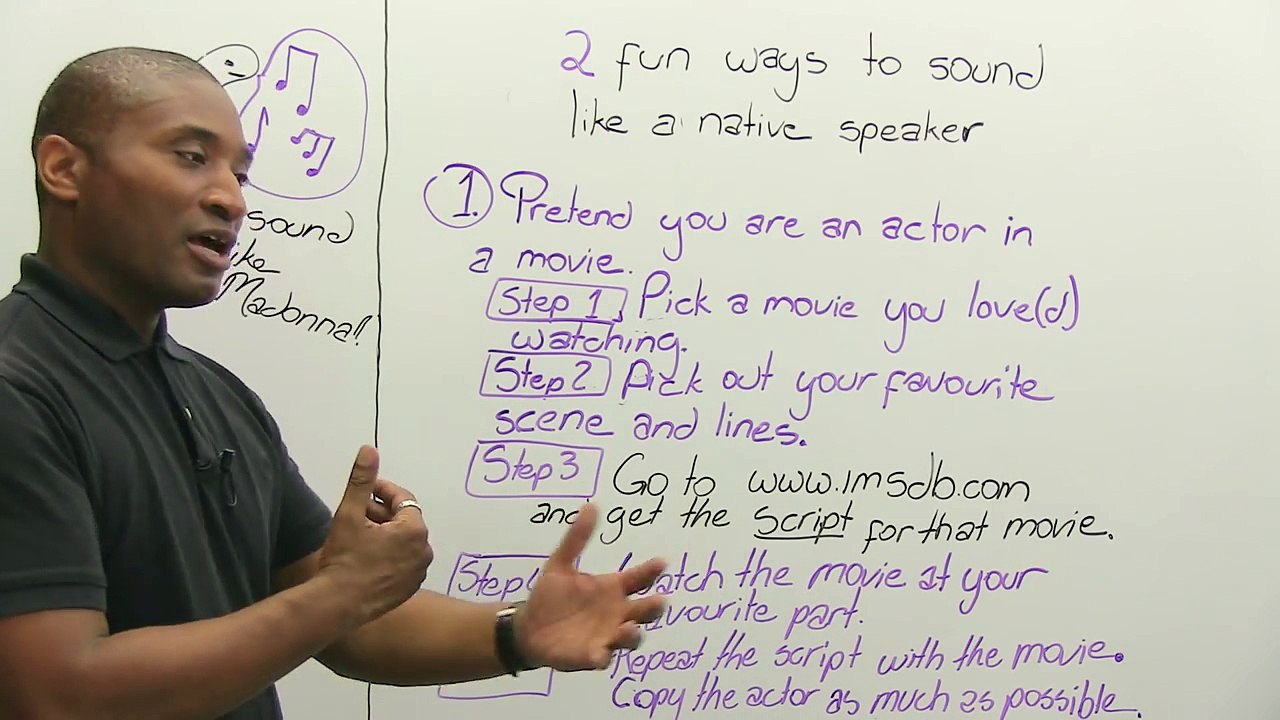 sound
Madonna!!
2 fun ways to sound
like a native speaker
1. Pretend you are an actor in
a movie.
Step 1 Pick a movie you love(d)
watching.
Step 2 Pick out your favourite
scene and lines.
Step 3 Go to www.imsdb.com
get the script for that movie.
Step the movie at your
part.
Repeat the script with the movie.
Copy the actor as much as possible.